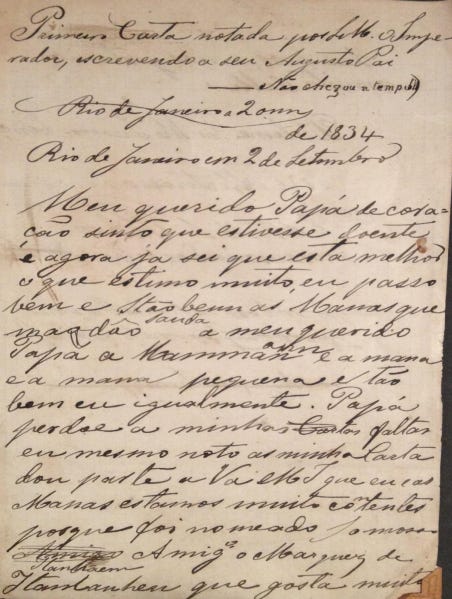 Primeira Carta notada por S. M. o Impe-
rador, escrevendo a seu Augusto Pai
— Não chegou a tempo
Rio de Janeiro a 2
de 1834
Rio de Janeiro em 2 de Setembro
Meu querido Papá de cora=
cão sinto que estivesse doente
é agora ja sei que esta melhor
o que estimo muito, eu passo
bem e tão bem as Manas que
mandão sauda a meu querido
Papá a Mamman e a mana
e a mana pequena e tão
bem eu igualmente. Papá
perdoe a minhas Cartas faltas
eu mesmo noto as minha Carta
dou parte a Va M I que eu e as
Manas estamos muito contentes
porque foi nomeado
Amigo Amigo o Marquez de
Itanhaem
Itamanheu que gosta muito